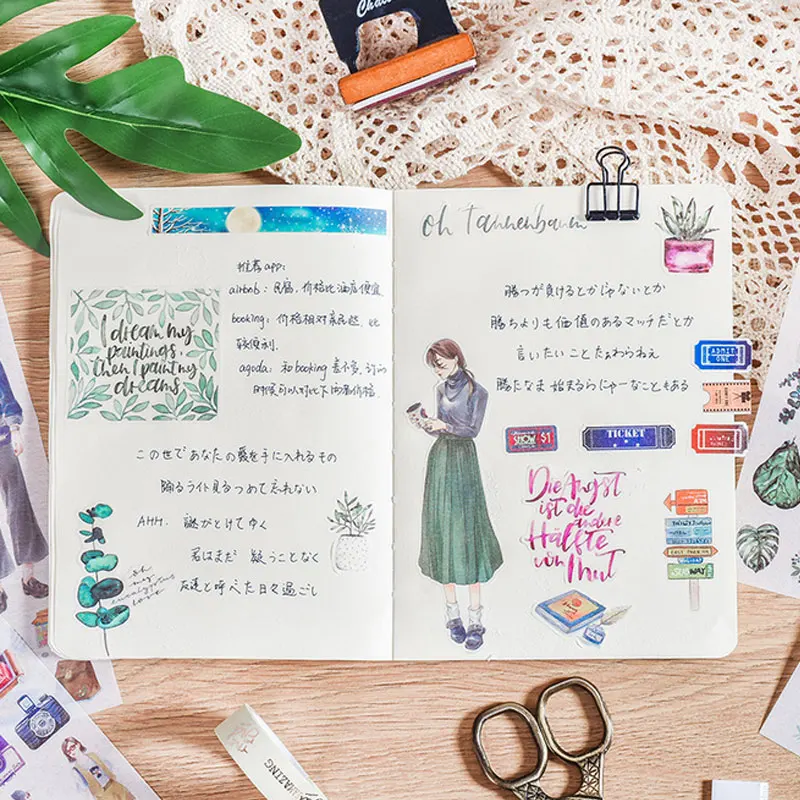 推荐app:
airbnb: 民宿，价格比酒店便宜
booking: 价格相对亲民些，比
较便利.
agoda: 和booking差不多，订的
时候可以对比下两者价格.
I dream my
paintings,
then I paint my
dreams
この世であなたの愛を手に入れるもの
踊るライト見つめて忘れない
AHH. 謎がとけてゆく
君はまだ 疑うことなく
友達と呼べた日々過ごし
oh
my
eucalyptus
love
oh Tannenbaum
勝つが負けるとかじゃないとか
勝ちよりも価値のあるマッチだとか
言いたいこと
ADMIT
ONE
SHOW $1
TICKET
Die Angst
ist die
andere
Hälfte
von Mut
SUBWAY
AMAZING